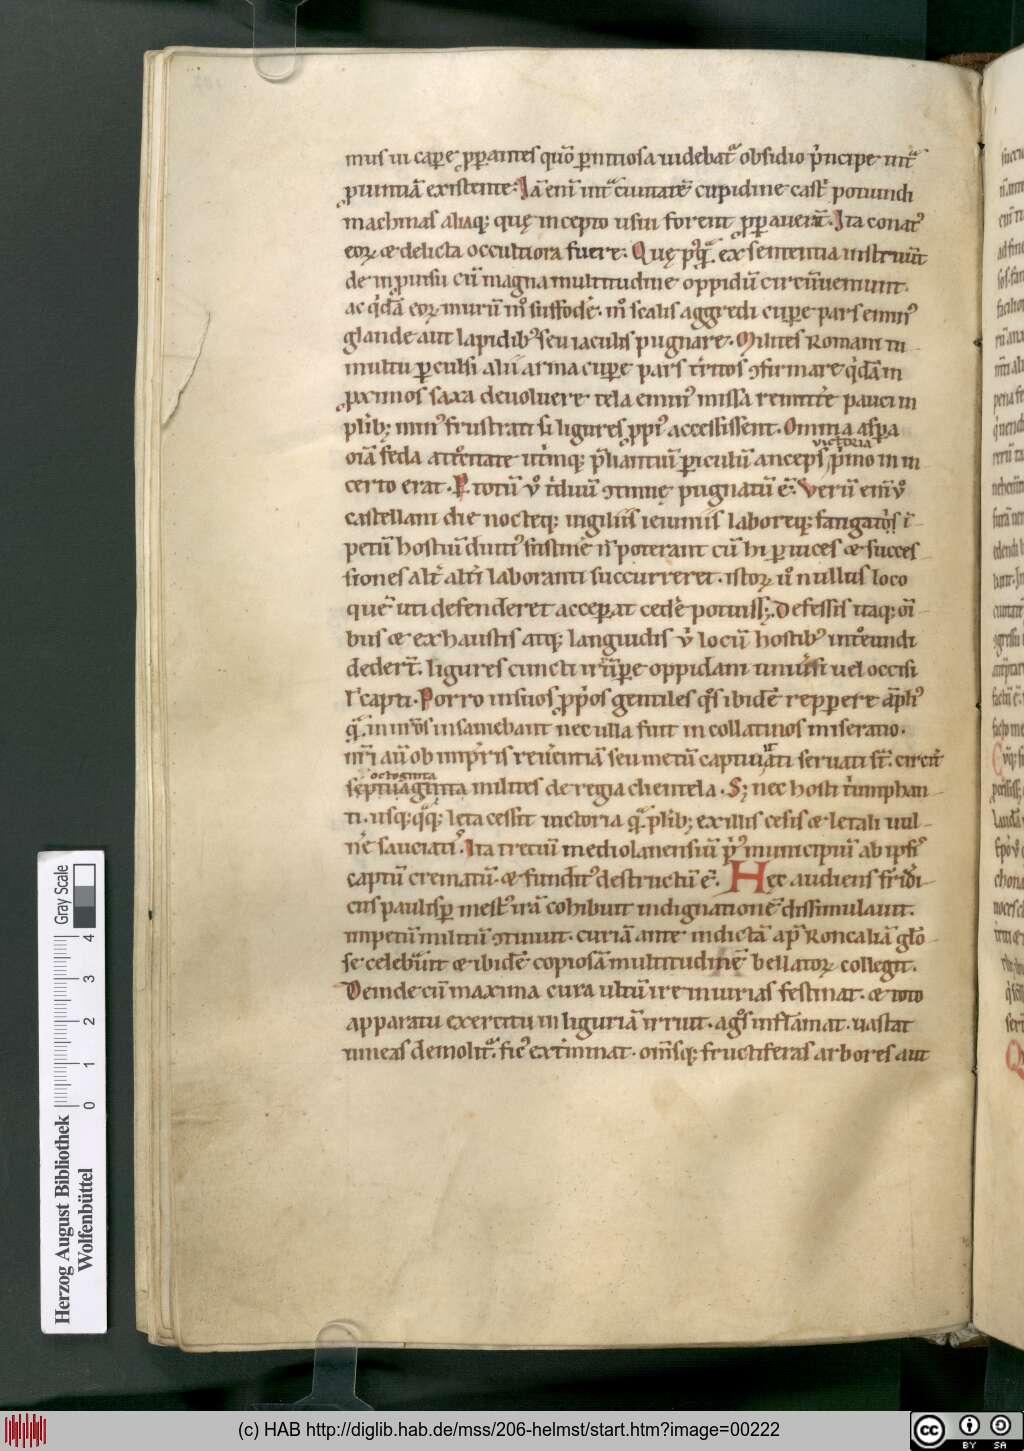 mus ui cap̲e p̲p̲antes quō p̲nitiosa uidebatᷓ obsidio p'ncipe intᷓ
puintiā existente. Iā eni͞ intᷓ ciuitatē cupidine castᷓ potiundi
machinas aliaq; quę incepto usui forent p̲p̲auerāt. Ita conatꝰ
eoꝝ & delicta occultiora fuere. Quę p'qᷓ ex sententia instruūt
de inpuisu cū magna multitudine oppidū circūueniunt.
ac q'dā eoꝝ murū m° suffodē. m° scalis aggredi cup̲e pars eminꝰ
glande aut lapidibꝰ seu iaculis pugnare. Milites Romani tu
multu p̲culsi alii arma cap̲e pars t'ritos ꝯfirmare q'dā in
pximos saxa deuoluere tela eminꝰ missa remitte pauci in
plib; minꝰ frustrati si ligures ppiꝰ accessissent. Omnia aspa
victoria
oiā feda attēnate utimq; p̄liantiū p̲iculū anceps p'mo in in
certo erat. P̲ totū u° t'duū ꝯtinuę pugnatū ē. Verū eni͞ u°
castellani die nocteq; uigiliis ieiuniis laboreq; fatigatos ī
petū hostiū diutiꝰ sustinē ñ poterant cū hi p̲ uices & succes
siones alt' alt'i laboranti succurreret. istoꝝ u° nullus loco
quē uti defenderet accep̲at cedē potuiss;. Defessis itaq; oi͞
bus & exhaustis atq; languidis u° locū hostibꝰ int°eundi
dedert̄. ligures cuncti irrup̲e oppidani uniu'si uel occisi
ł capti. Porro in suos pp̲os gentiles qͦs ibidē repp̲ere ap̄lꝰ
qᷓ in uros insaniebant nec ulla fuit in collatiuos miseratio.
nr̄i aū ob imp̲ris reu'entiā seu metū captiuati seruati st̄. circit'
octoginta
septuaginta milites de regia clientela. S; nec hosti t'umphan
ti. usq;qᷓq; leta cessit uictoria qᷓ plib; ex illis cesis & letali uul
n'e sauciatꝰ. Ita tretiū mediolanensiū p'ꝰ municipiū ab ipsiꝰ
captū crematū. & funditꝰ destructū ē. Hęc audiens fr'idi
cus paulisp̲ mestꝰ irā cohibuit indignationē dissimulauit.
impetū militiū ꝯtinuit. curiā ante indictā apᷓ Roncaliā glͦo
se celebrūt & ibidē copiosā multitudinē bellatoꝝ collegit.
Deinde cū maxima cura ultū ire iniurias festinat. & toto
apparatu exercitu in liguriā irruit. agͦs inflāmat. uastat
uineas demolitᷓ. ficꝰ ext'minat. omīsq; fructiferas arbores aut
Herzog August Bibliothek
Wolfenbüttel
0 1 2 3 4
Gray Scale
(c) HAB http://diglib.hab.de/mss/206-helmst/start.htm?image=00222
cc BY SA